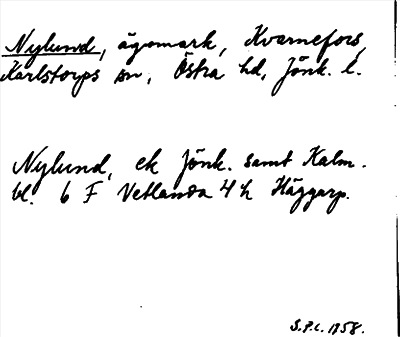 Nylund, ägomark, Kvarnefors,
Karlstorps sn, Östra hd, Jönk. l.
Nylund, ek Jönk. samt Kalm.
bl. 6 F Vetlanda 4 h Häggarp.
S.P.L. 1958.